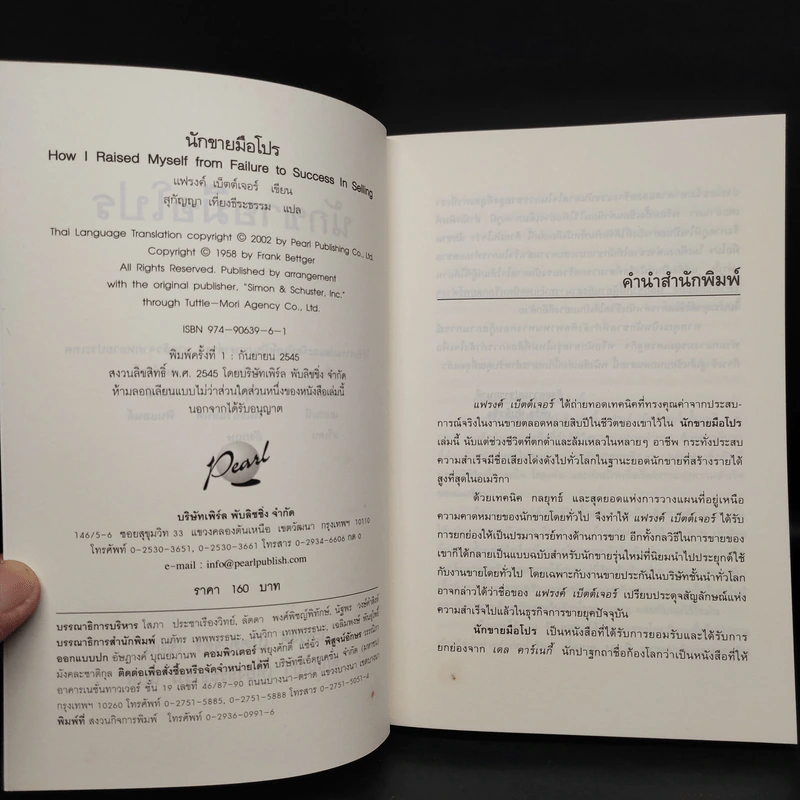 นักขายมือโปร
How I Raised Myself from Failure to Success In Selling
แฟรงค์ เบ็ตต์เจอร์ เขียน
สุกัญญา เที่ยงธีระธรรม แปล
Thai Language Translation copyright © 2002 by Pearl Publishing Co., Ltd.
Copyright © 1958 by Frank Bettger
All Rights Reserved. Published by arrangement
with the original publisher, "Simon & Schuster, Inc."
through Tuttle-Mori Agency Co., Ltd.
ISBN 974-90639-6-1
พิมพ์ครั้งที่ 1 : กันยายน 2545
สงวนลิขสิทธิ์ พ.ศ. 2545 โดยบริษัทเพิร์ล พับลิชชิ่ง จำกัด
ห้ามลอกเลียนแบบไม่ว่าส่วนใดส่วนหนึ่งของหนังสือเล่มนี้
นอกจากได้รับอนุญาต
Pearl
บริษัทเพิร์ล พับลิชชิ่ง จำกัด
146/5-6 ซอยสุขุมวิท 33 แขวงคลองตันเหนือ เขตวัฒนา กรุงเทพฯ 10110
โทรศัพท์ 0-2530-3651, 0-2530-3661 โทรสาร 0-2934-6606 กด 0
e-mail : info@pearlpublish.com
ราคา 160 บาท
บรรณาธิการบริหาร โสภา ประชาเรืองวิทย์, ลัดดา พงศ์พิชญ์พิทักษ์, นัฐพร วงษ์คำสิงห์
บรรณาธิการสำนักพิมพ์ ณภัทร เทพพรรธนะ, นันวิกา เทพพรรธนะ, เฉลิมพงษ์
ออกแบบปก อัษฎางค์ บุณยมานพ คอมพิวเตอร์ พยุงศักดิ์ แซ่จิ๋ว พิสูจน์อักษร
มังคละชาติกุล ติดต่อเพื่อสั่งซื้อหรือจัดจำหน่ายได้ที่ บริษัทซีเอ็ดยูเคชั่น จำกัด (มหาชน)
อาคารเนชั่นทาวเวอร์ ชั้น 19 เลขที่ 46/87-90 ถนนบางนา-ตราด แขวงบางนา เขตบางนา
กรุงเทพฯ 10260 โทรศัพท์ 0-2751-5885, 0-2751-5888 โทรสาร 0-2751-5051-4
พิมพ์ที่ สงวนกิจการพิมพ์ โทรศัพท์ 0-2936-0991-6
คำนำสำนักพิมพ์
แฟรงค์ เบ็ตต์เจอร์ ได้ถ่ายทอดเทคนิคที่ทรงคุณค่าจากประสบ-
การณ์จริงในงานขายตลอดหลายสิบปีในชีวิตของเขาไว้ใน นักขายมือโปร
เล่มนี้ นับแต่ช่วงชีวิตที่ตกต่ำและล้มเหลวในหลายๆ อาชีพ กระทั่งประสบ
ความสำเร็จมีชื่อเสียงโด่งดังไปทั่วโลกในฐานะยอดนักขายที่สร้างรายได้
สูงที่สุดในอเมริกา
ด้วยเทคนิค กลยุทธ์ และสุดยอดแห่งการวางแผนที่อยู่เหนือ
ความคาดหมายของนักขายโดยทั่วไป จึงทำให้ แฟรงค์ เบ็ตต์เจอร์ ได้รับ
การยกย่องให้เป็นปรมาจารย์ทางด้านการขาย อีกทั้งกลวิธีในการขายของ
เขาก็ได้กลายเป็นแบบฉบับสำหรับนักขายรุ่นใหม่ที่นิยมนำไปประยุกต์ใช้
กับงานขายโดยทั่วไป โดยเฉพาะกับงานขายประกันในบริษัทชั้นนำทั่วโลก
อาจกล่าวได้ว่าชื่อของ แฟรงค์ เบ็ตต์เจอร์ เปรียบประดุจสัญลักษณ์แห่ง
ความสำเร็จไปแล้วในธุรกิจการขายยุคปัจจุบัน
นักขายมือโปร เป็นหนังสือที่ได้รับการยอมรับและได้รับการ
ยกย่องจาก เดล คาร์เนกี้ นักปาฐกถาชื่อก้องโลกว่าเป็นหนังสือที่ให้